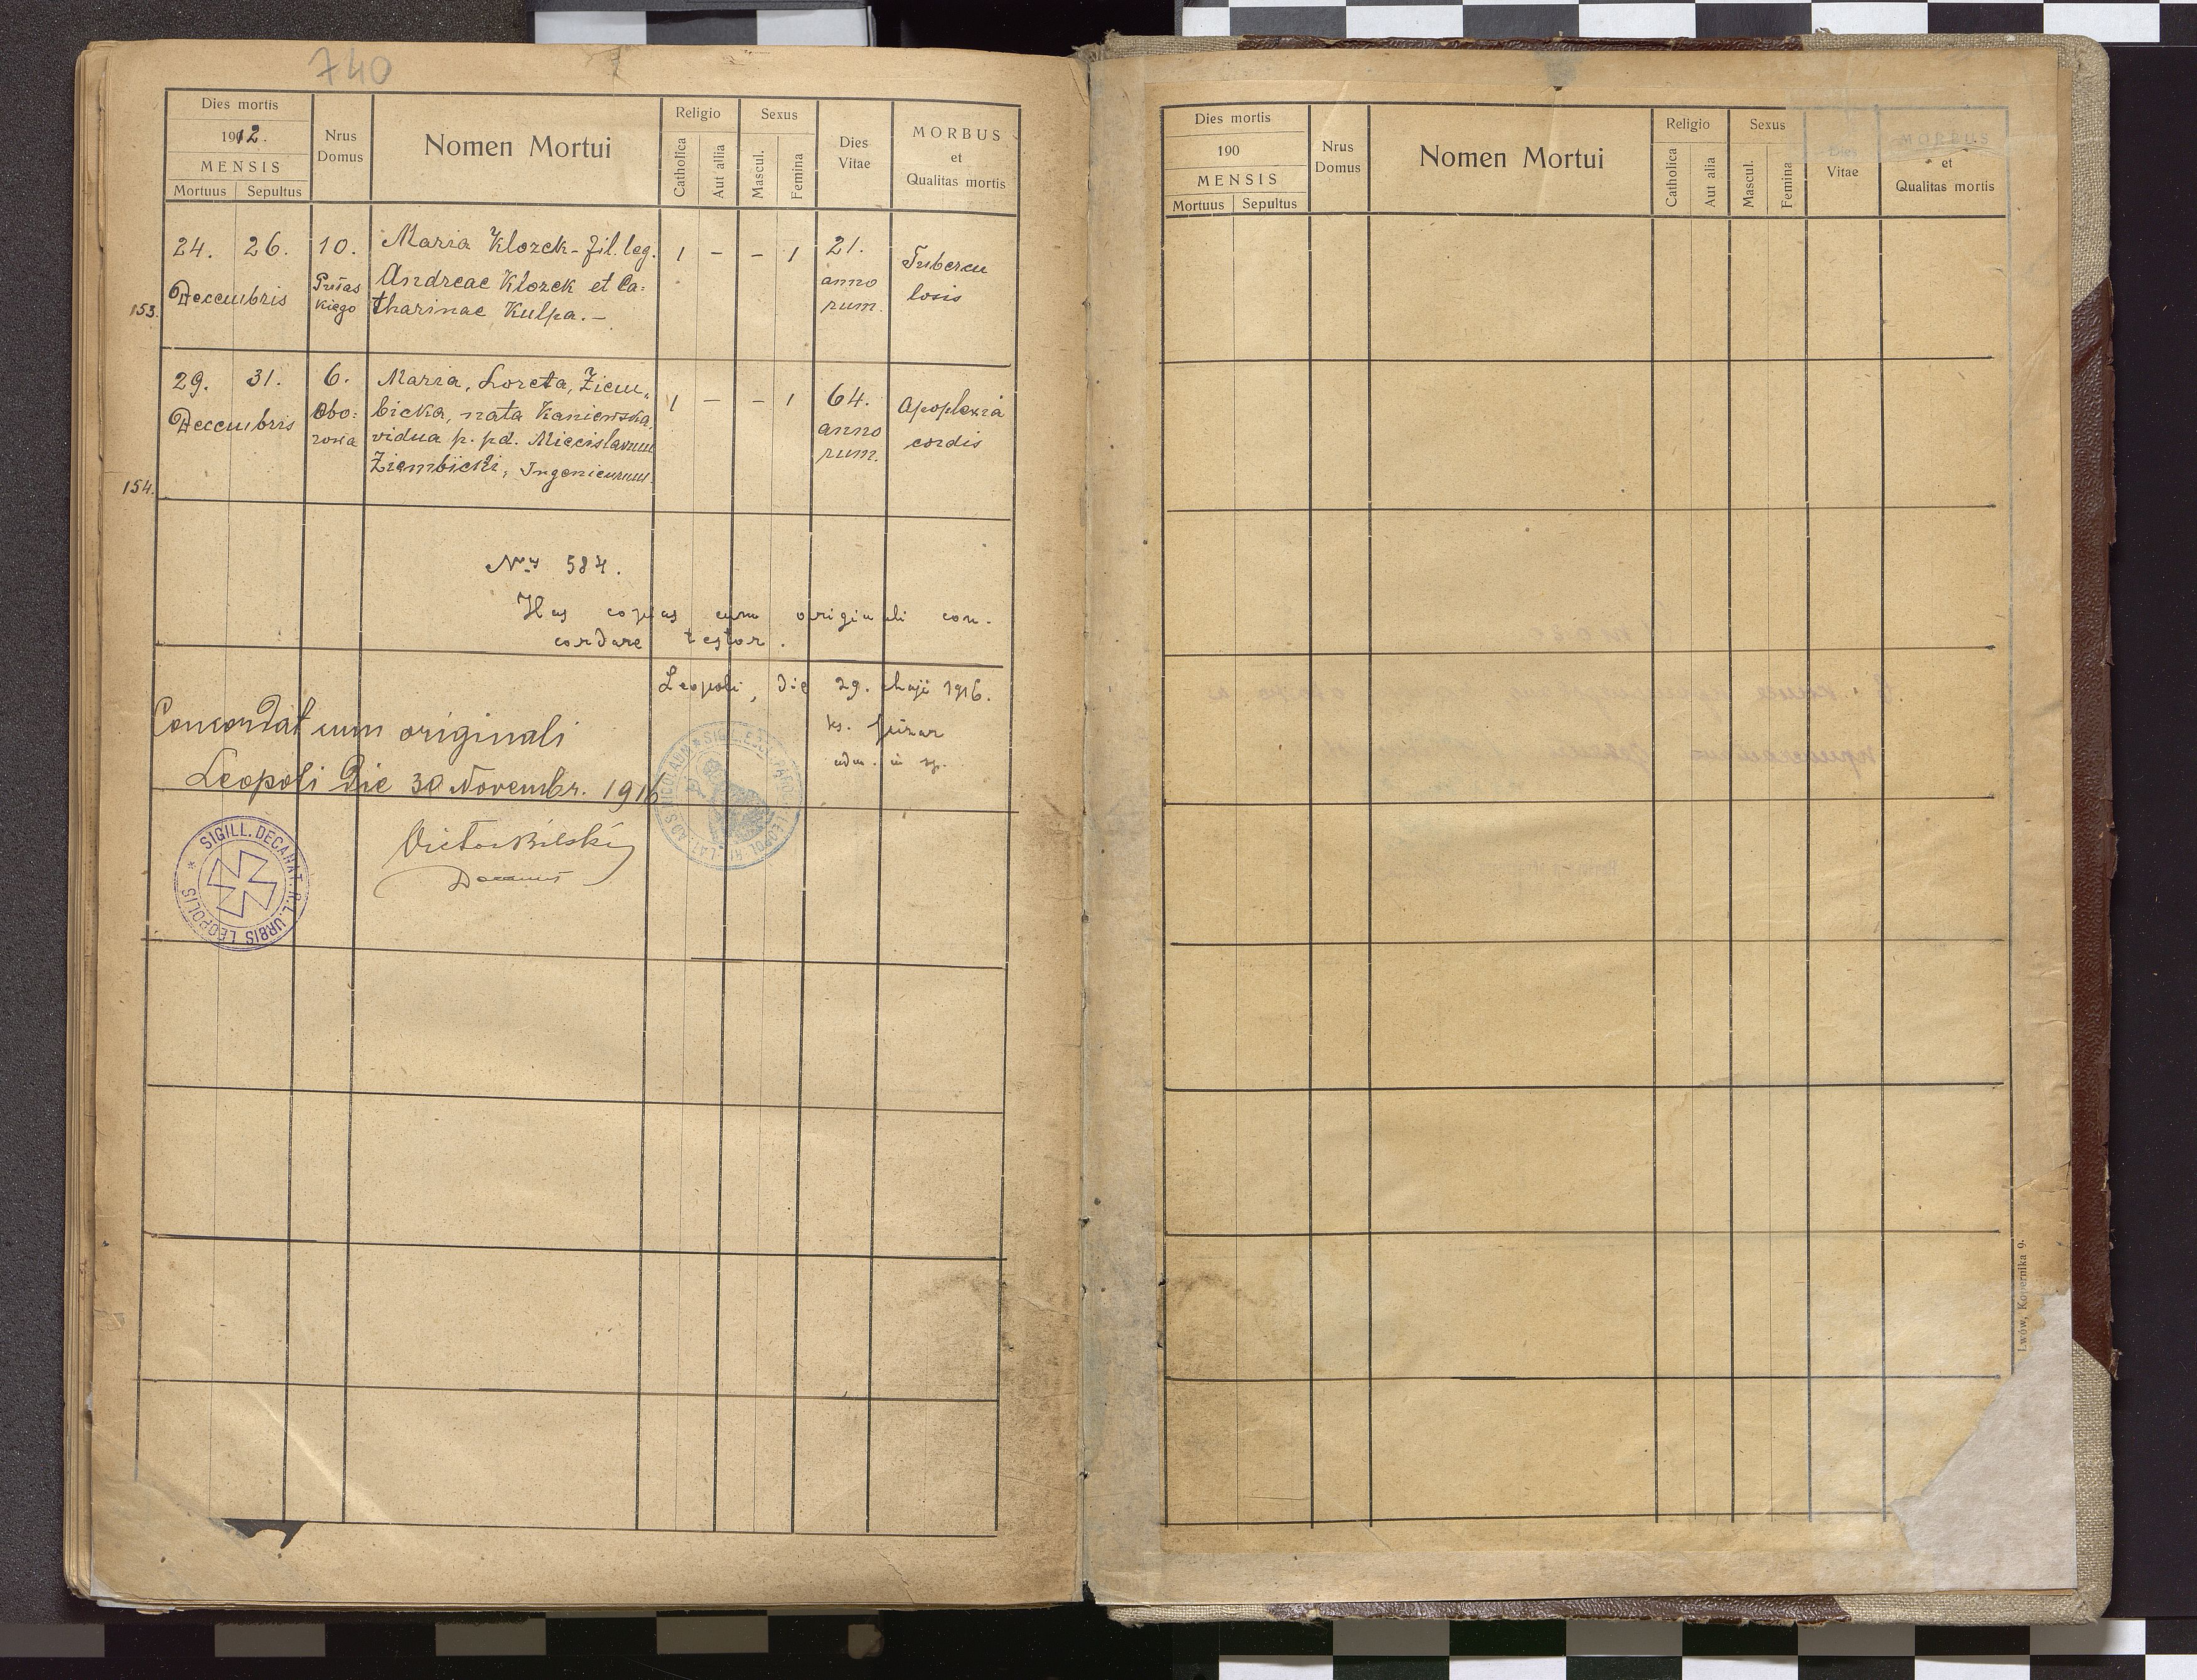 740
Dies mortis
1912.
MENSIS
Mortuus Sepultus
Nrus
Domus
Nomen Mortui
Religio
Catholica
Aut allia
Sexus
Mascul.
Femina
Dies
Vitae
MORBUS
et
Qualitas mortis
153.
24. 26.
Decembris
10.
kiego
Maria Klozek - fil. leg.
Andreae Klozek et Ca=
tharinae Kulpa. -
1 - - 1
21.
anno
rum.
Tubercu
losis
154.
29. 31.
Decembris
6.
Obo=
Maria, Loreta, Ziem„
bicka, nata Kaniewska,
vidua p. pd. Miecislavum
Ziembicki, Ingenieurum
1 - - 1
64.
anno
rum.
Apoplexia
cordis
Nr 584.
Has copias cum originali con-
cordare testor.
Leopoli, die 29. Maji 1916.
ks.
Concordat cum originali
Leopoli Die 30 Novembr. 1916
Victor Bilski
Decanus
* SIGILL. DECANAT. R. L. URBIS LEOPOLIS
Dies mortis
190
MENSIS
Mortuus Sepultus
Nrus
Domus
Nomen Mortui
Religio
Catholica
Aut alia
Sexus
Mascul.
Femina
Dies
Vitae
MORBUS
et
Qualitas mortis
Lwów, Kopernika 9.